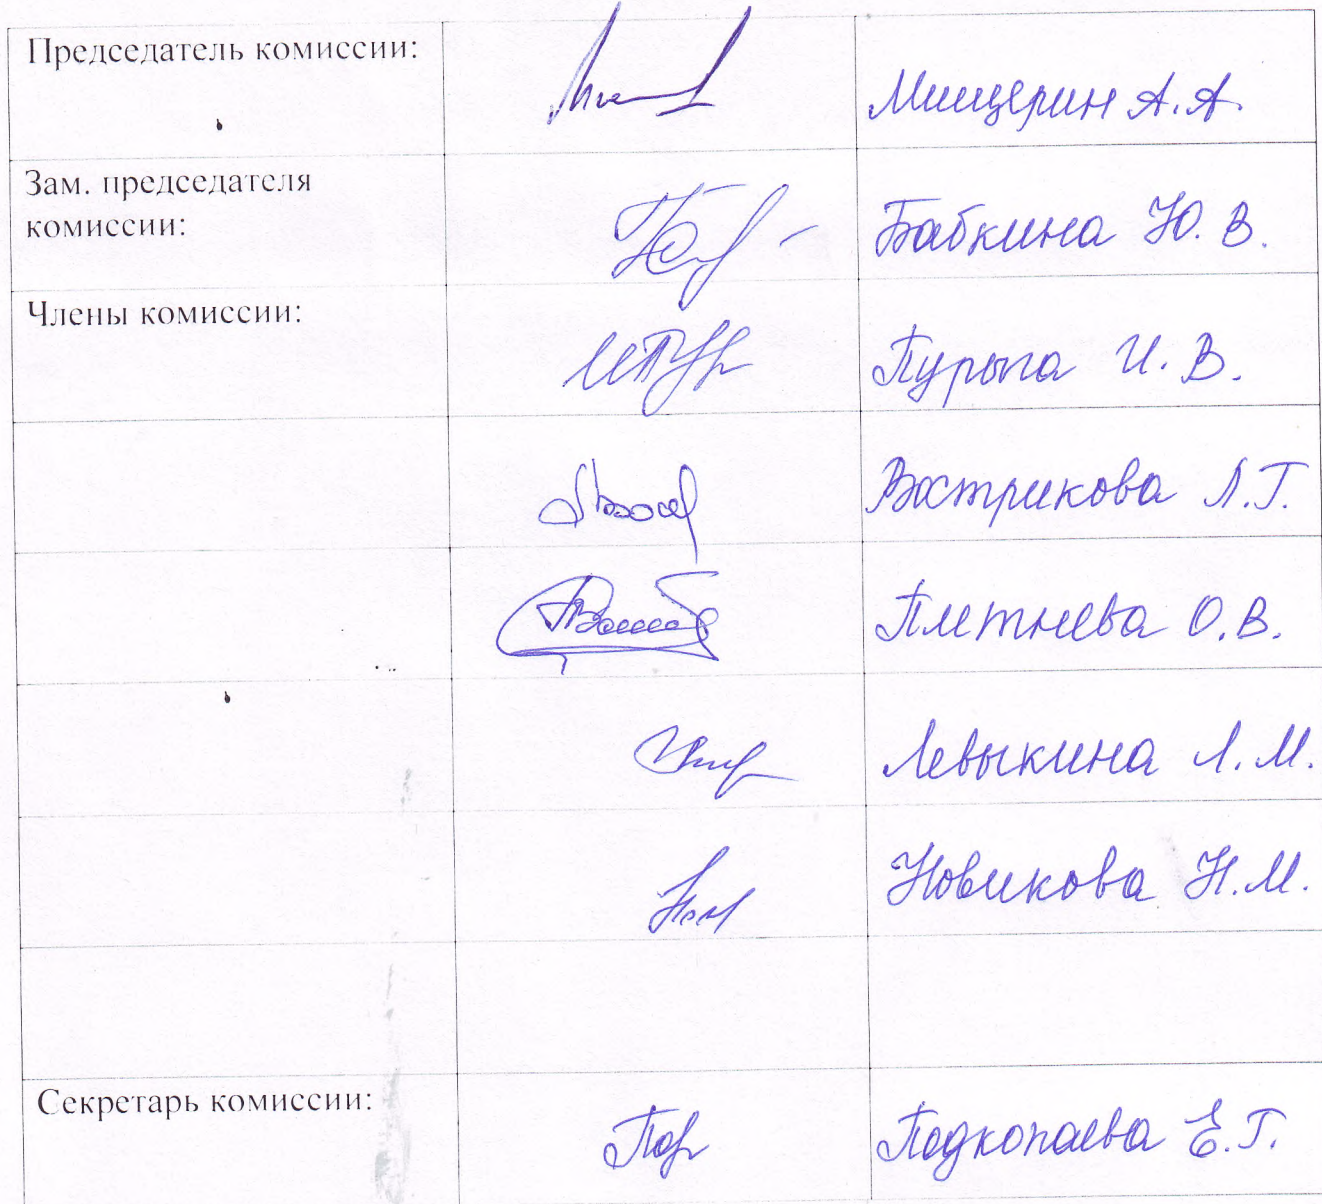 Председатель комиссии:
Мищерин А.А.
Зам. председателя
комиссии:
Бабкина Ю.В.
Члены комиссии:
Пурыга И.В.
Вострикова Л.Г.
Плетнева О.В.
Левыкина Л.М.
Новикова Н.М.
Секретарь комиссии:
Подкопаева Е.Г.